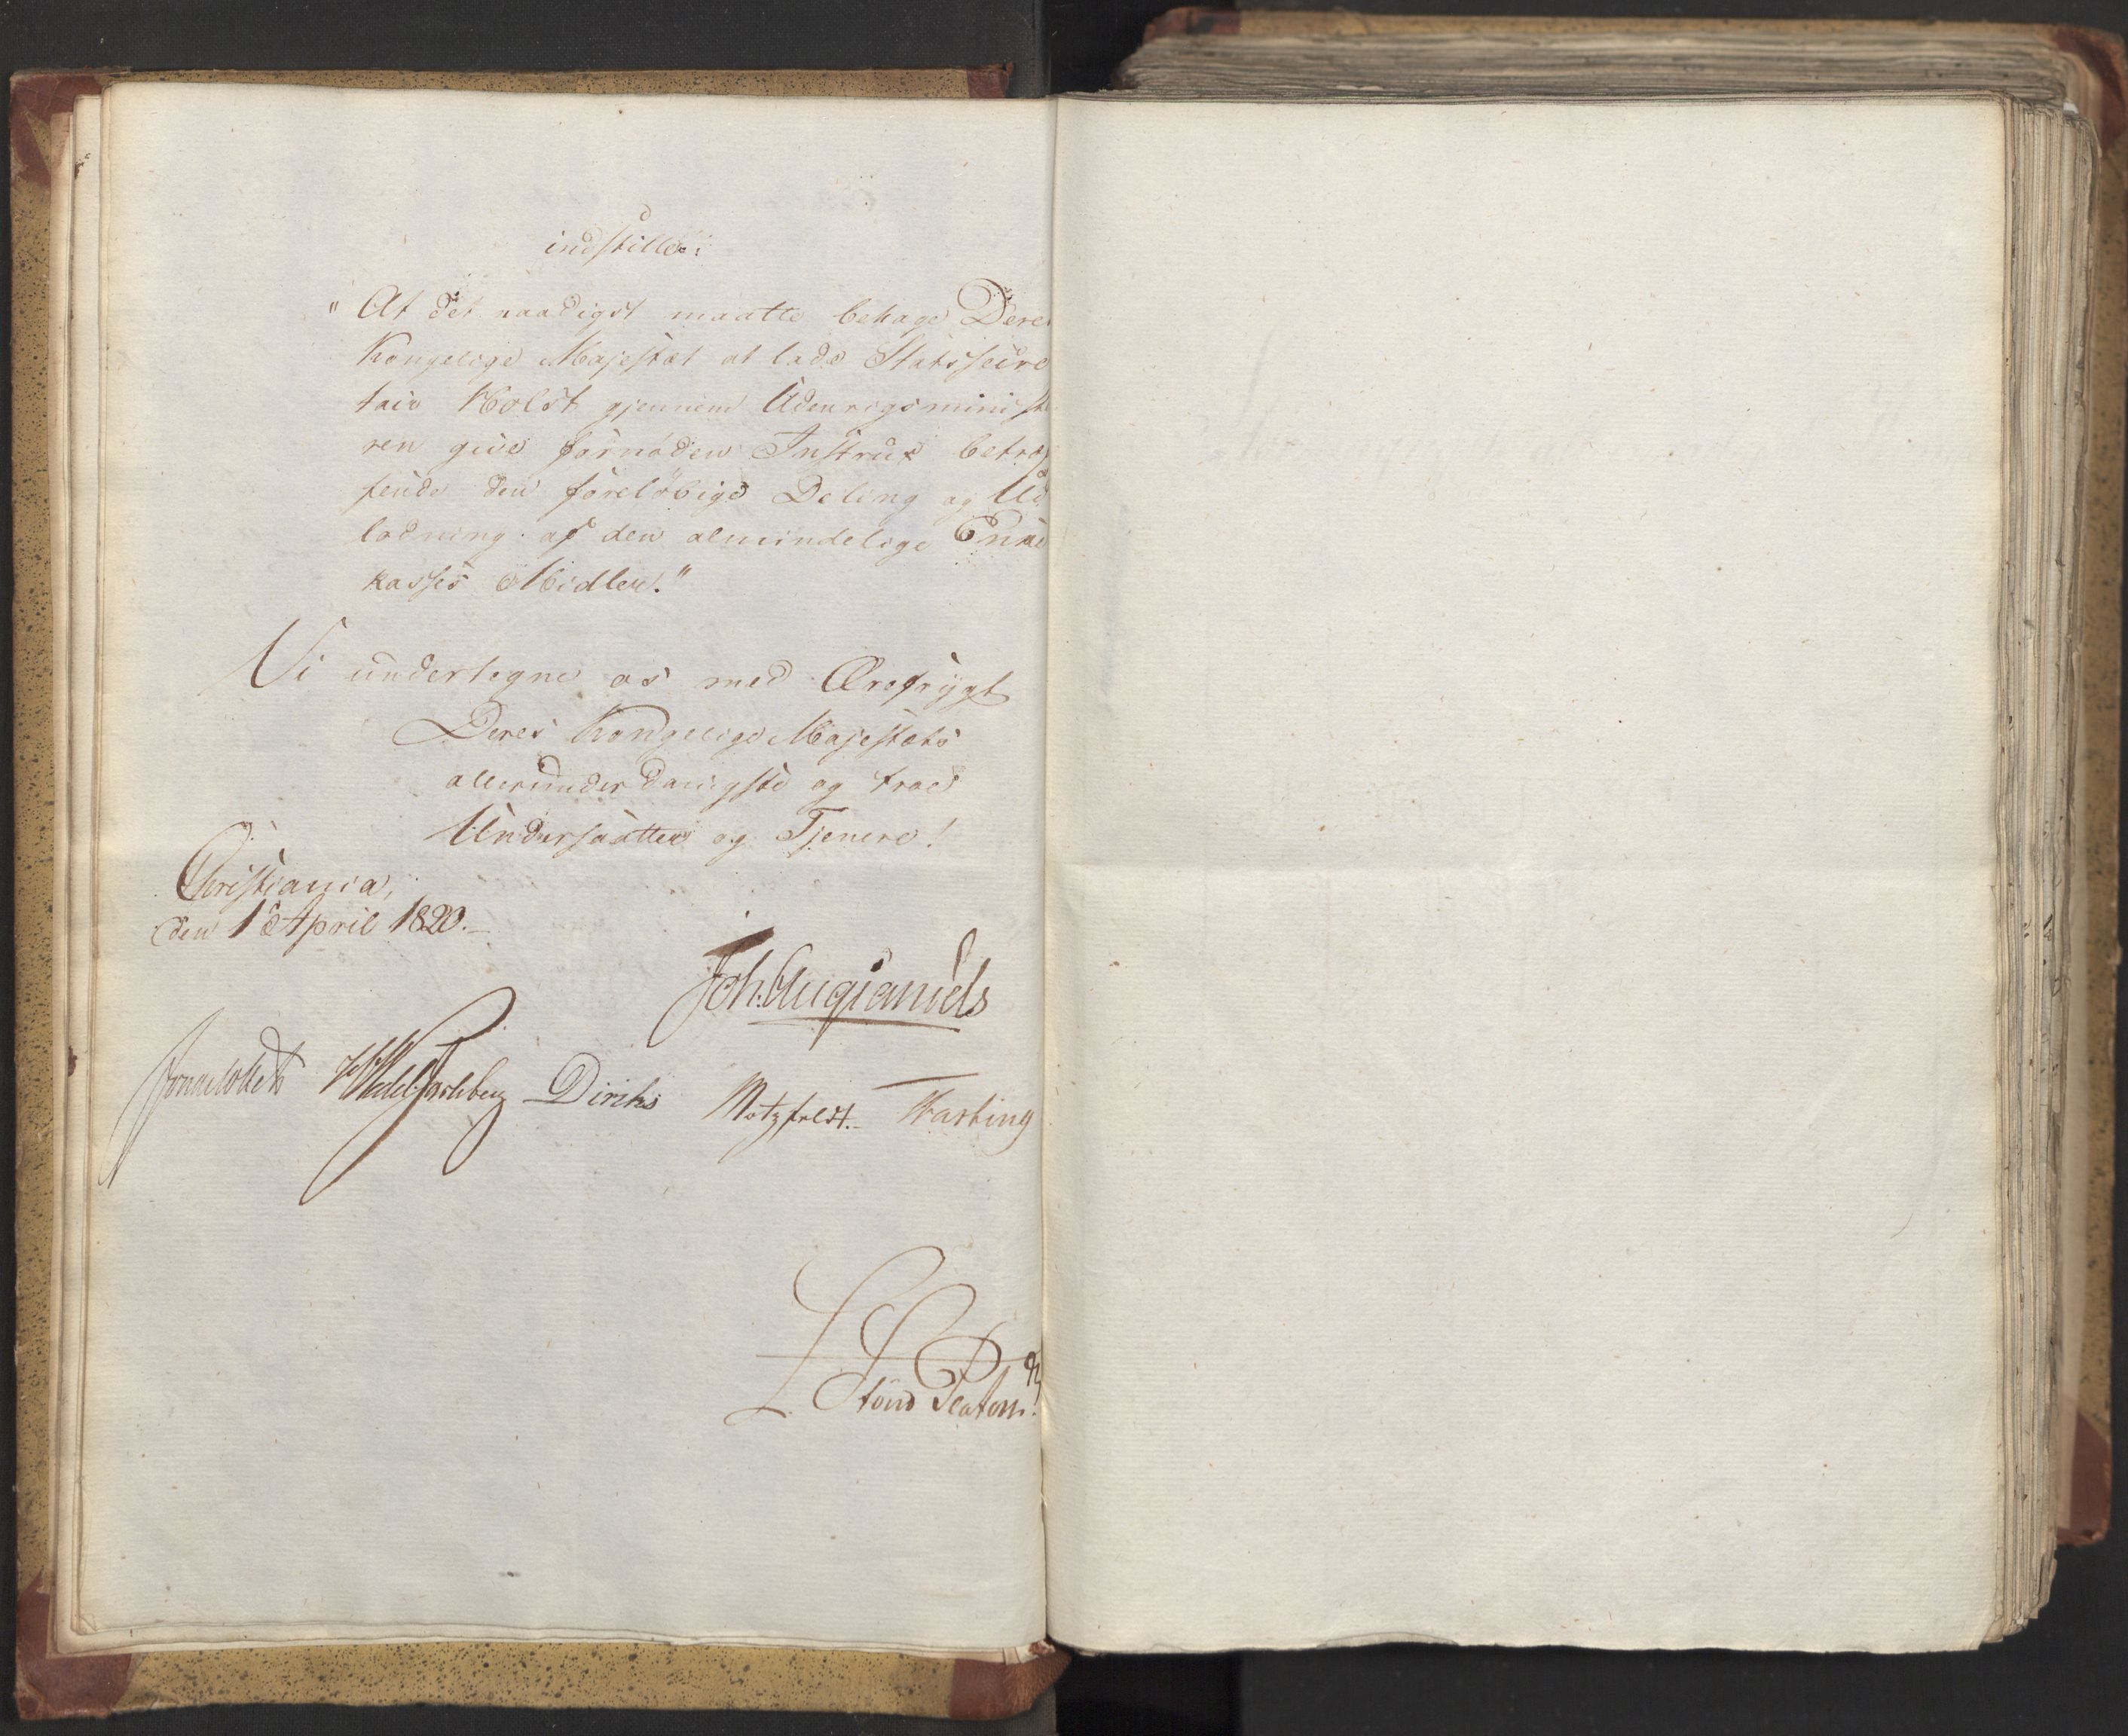 indstille:
"At det naadigst maatte behage Deres
Kongelige Majestæt at lade Statssecre
tair Holst gjennem Udenrigsministe
ren give fornøden Instrux betræf
fende den foreløbige Deling og Ud
lodning af den almindelige Enke
kasses Midler."
Vi undertegne os med Ærefrygt
Deres Kongelige Majestæts
allerunderdanigste og troe
Undersaatter og Tjenere!
Christiania,
den 1 April 1820.
Sommerhielm Wedel Jarlsberg Diriks Motzfeldt. Fasting